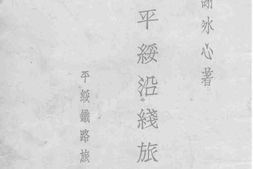 冰心著
平綏沿綫旅
平綏鐵路旅